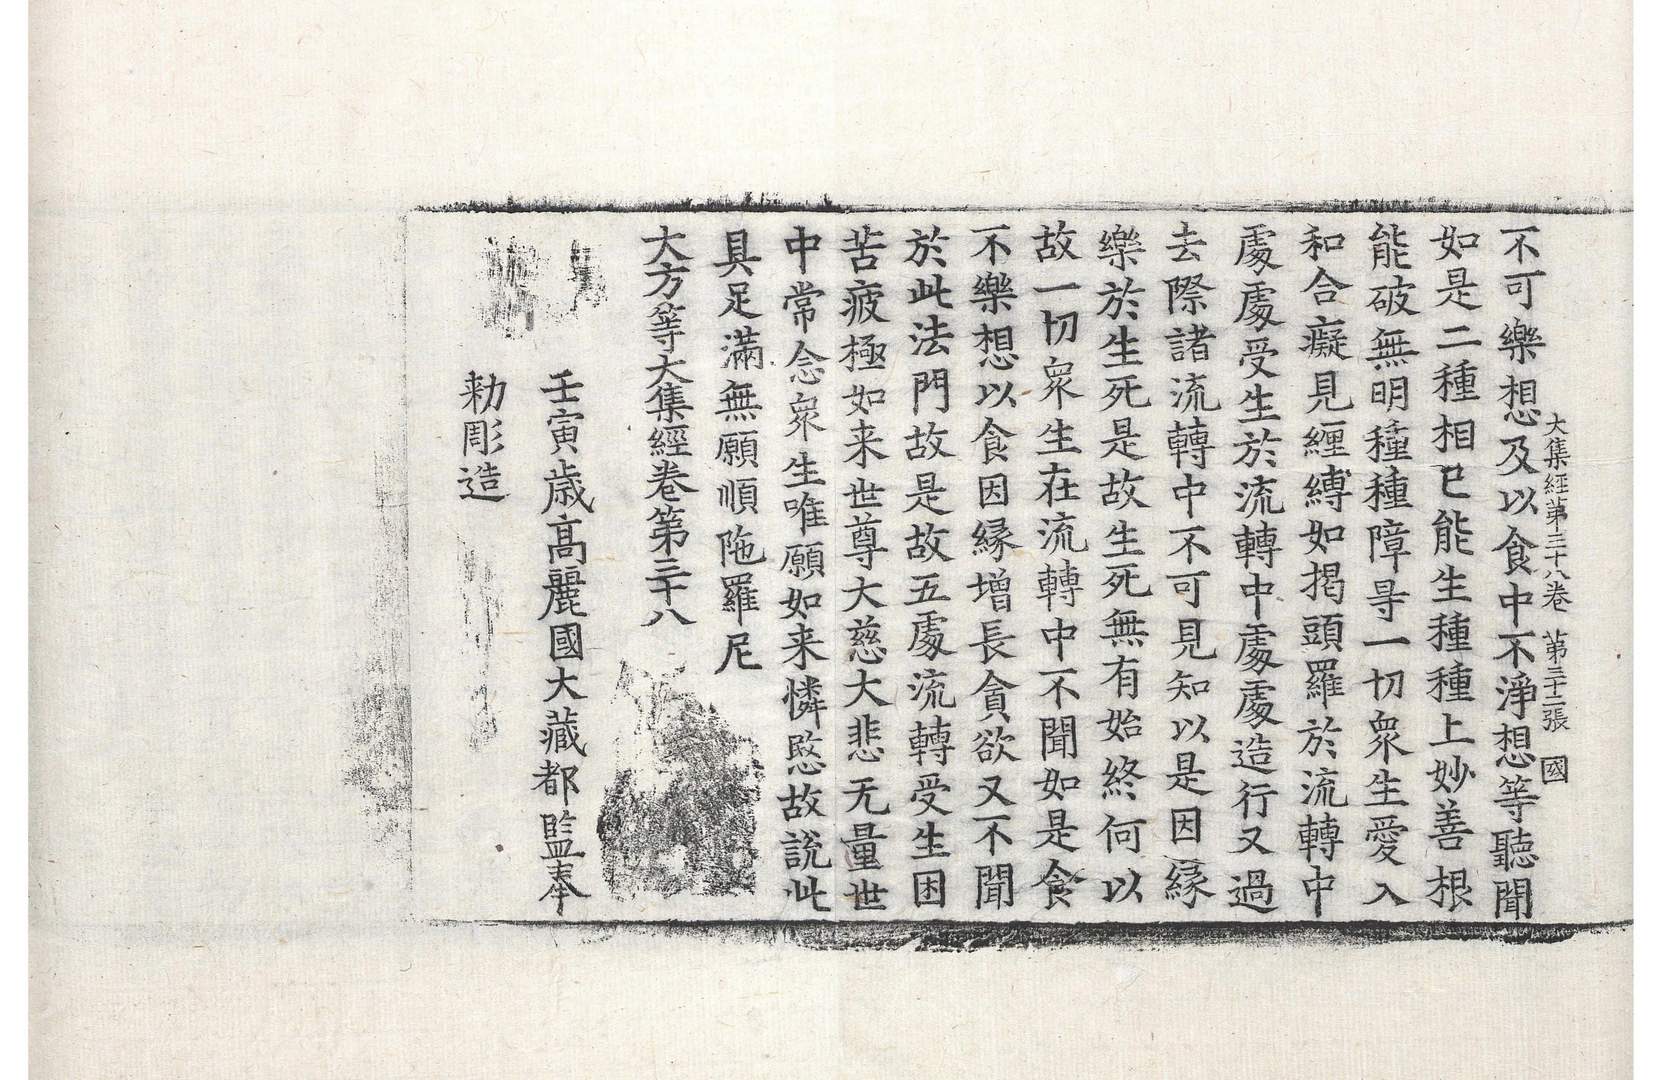 大集經第三十八卷　第三十二張　國
不可樂想及以食中不淨想等聽聞
如是二種相已能生種種上妙善根
能破無明種種障㝵一切衆生愛入
和合癡見纒縛如揭頭羅於流轉中
處處受生於流轉中處處造行又過
去際諸流轉中不可見知以是因縁
樂於生死是故生死無有始終何以
故一切衆生在流轉中不聞如是食
不樂想以食因縁增長貪欲又不聞
於此法門故是故五處流轉受生困
苦疲極如来世尊大慈大悲无量世
中常念衆生唯願如来憐愍故說此
具足滿無願順陁羅尼
大方等大集經卷第三十八
壬寅歲高麗國大藏都監奉
勅彫造